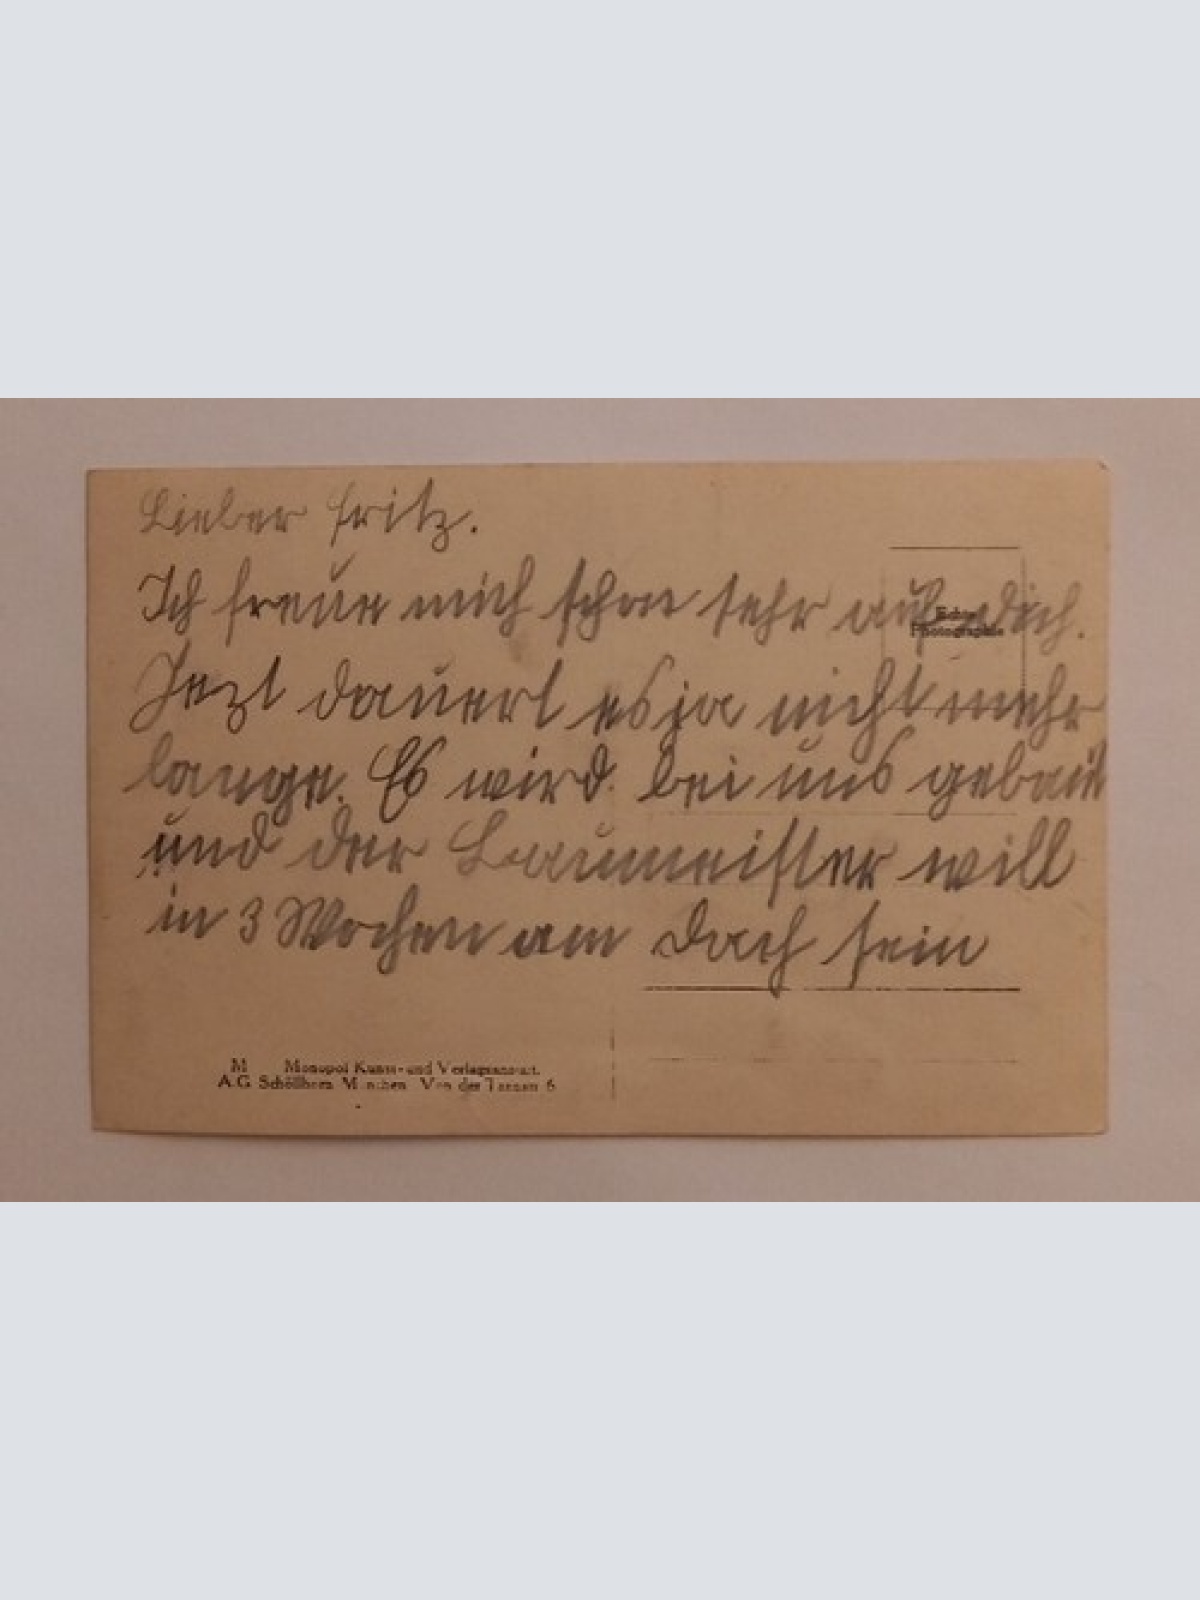 Lieber Fritz.
Ich freue mich schon sehr auf dich.
Echte
Photographie
Jezt dauert es ja nicht mehr
lange. Es wird bei uns gebaut
und der Baumeister will
in 3 Wochen am Dach sein
M Monopol Kunst- und Verlagsanstalt.
A.G. Schöllhorn München Von der Tannstr. 6